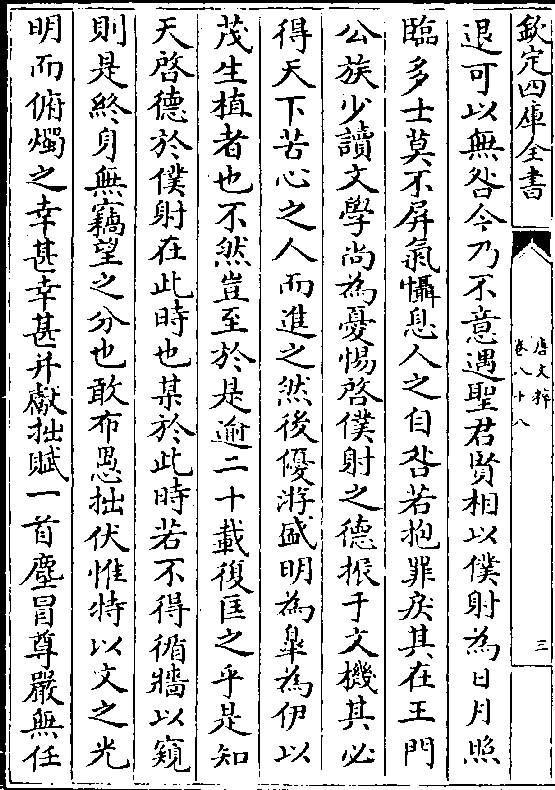 欽定四庫全書
唐文粹
卷八十八
三
退可以無咎今乃不意遇聖君賢相以僕射為日月照
臨多士莫不屏氣懾息人之自咎若抱罪戾其在王門
公族少讀文學尚為憂惕啓僕射之德振于文機其必
得天下苦心之人而進之然後優游盛明為臯為伊以
茂生植者也不然豈至於是逾二十載復匡之乎是知
天啓德於僕射在此時也某於此時若不得循牆以窺
則是終身無竊望之分也敢布愚拙伏惟特以文之光
明而俯燭之幸甚幸甚并獻拙賦一首塵冒尊嚴無任